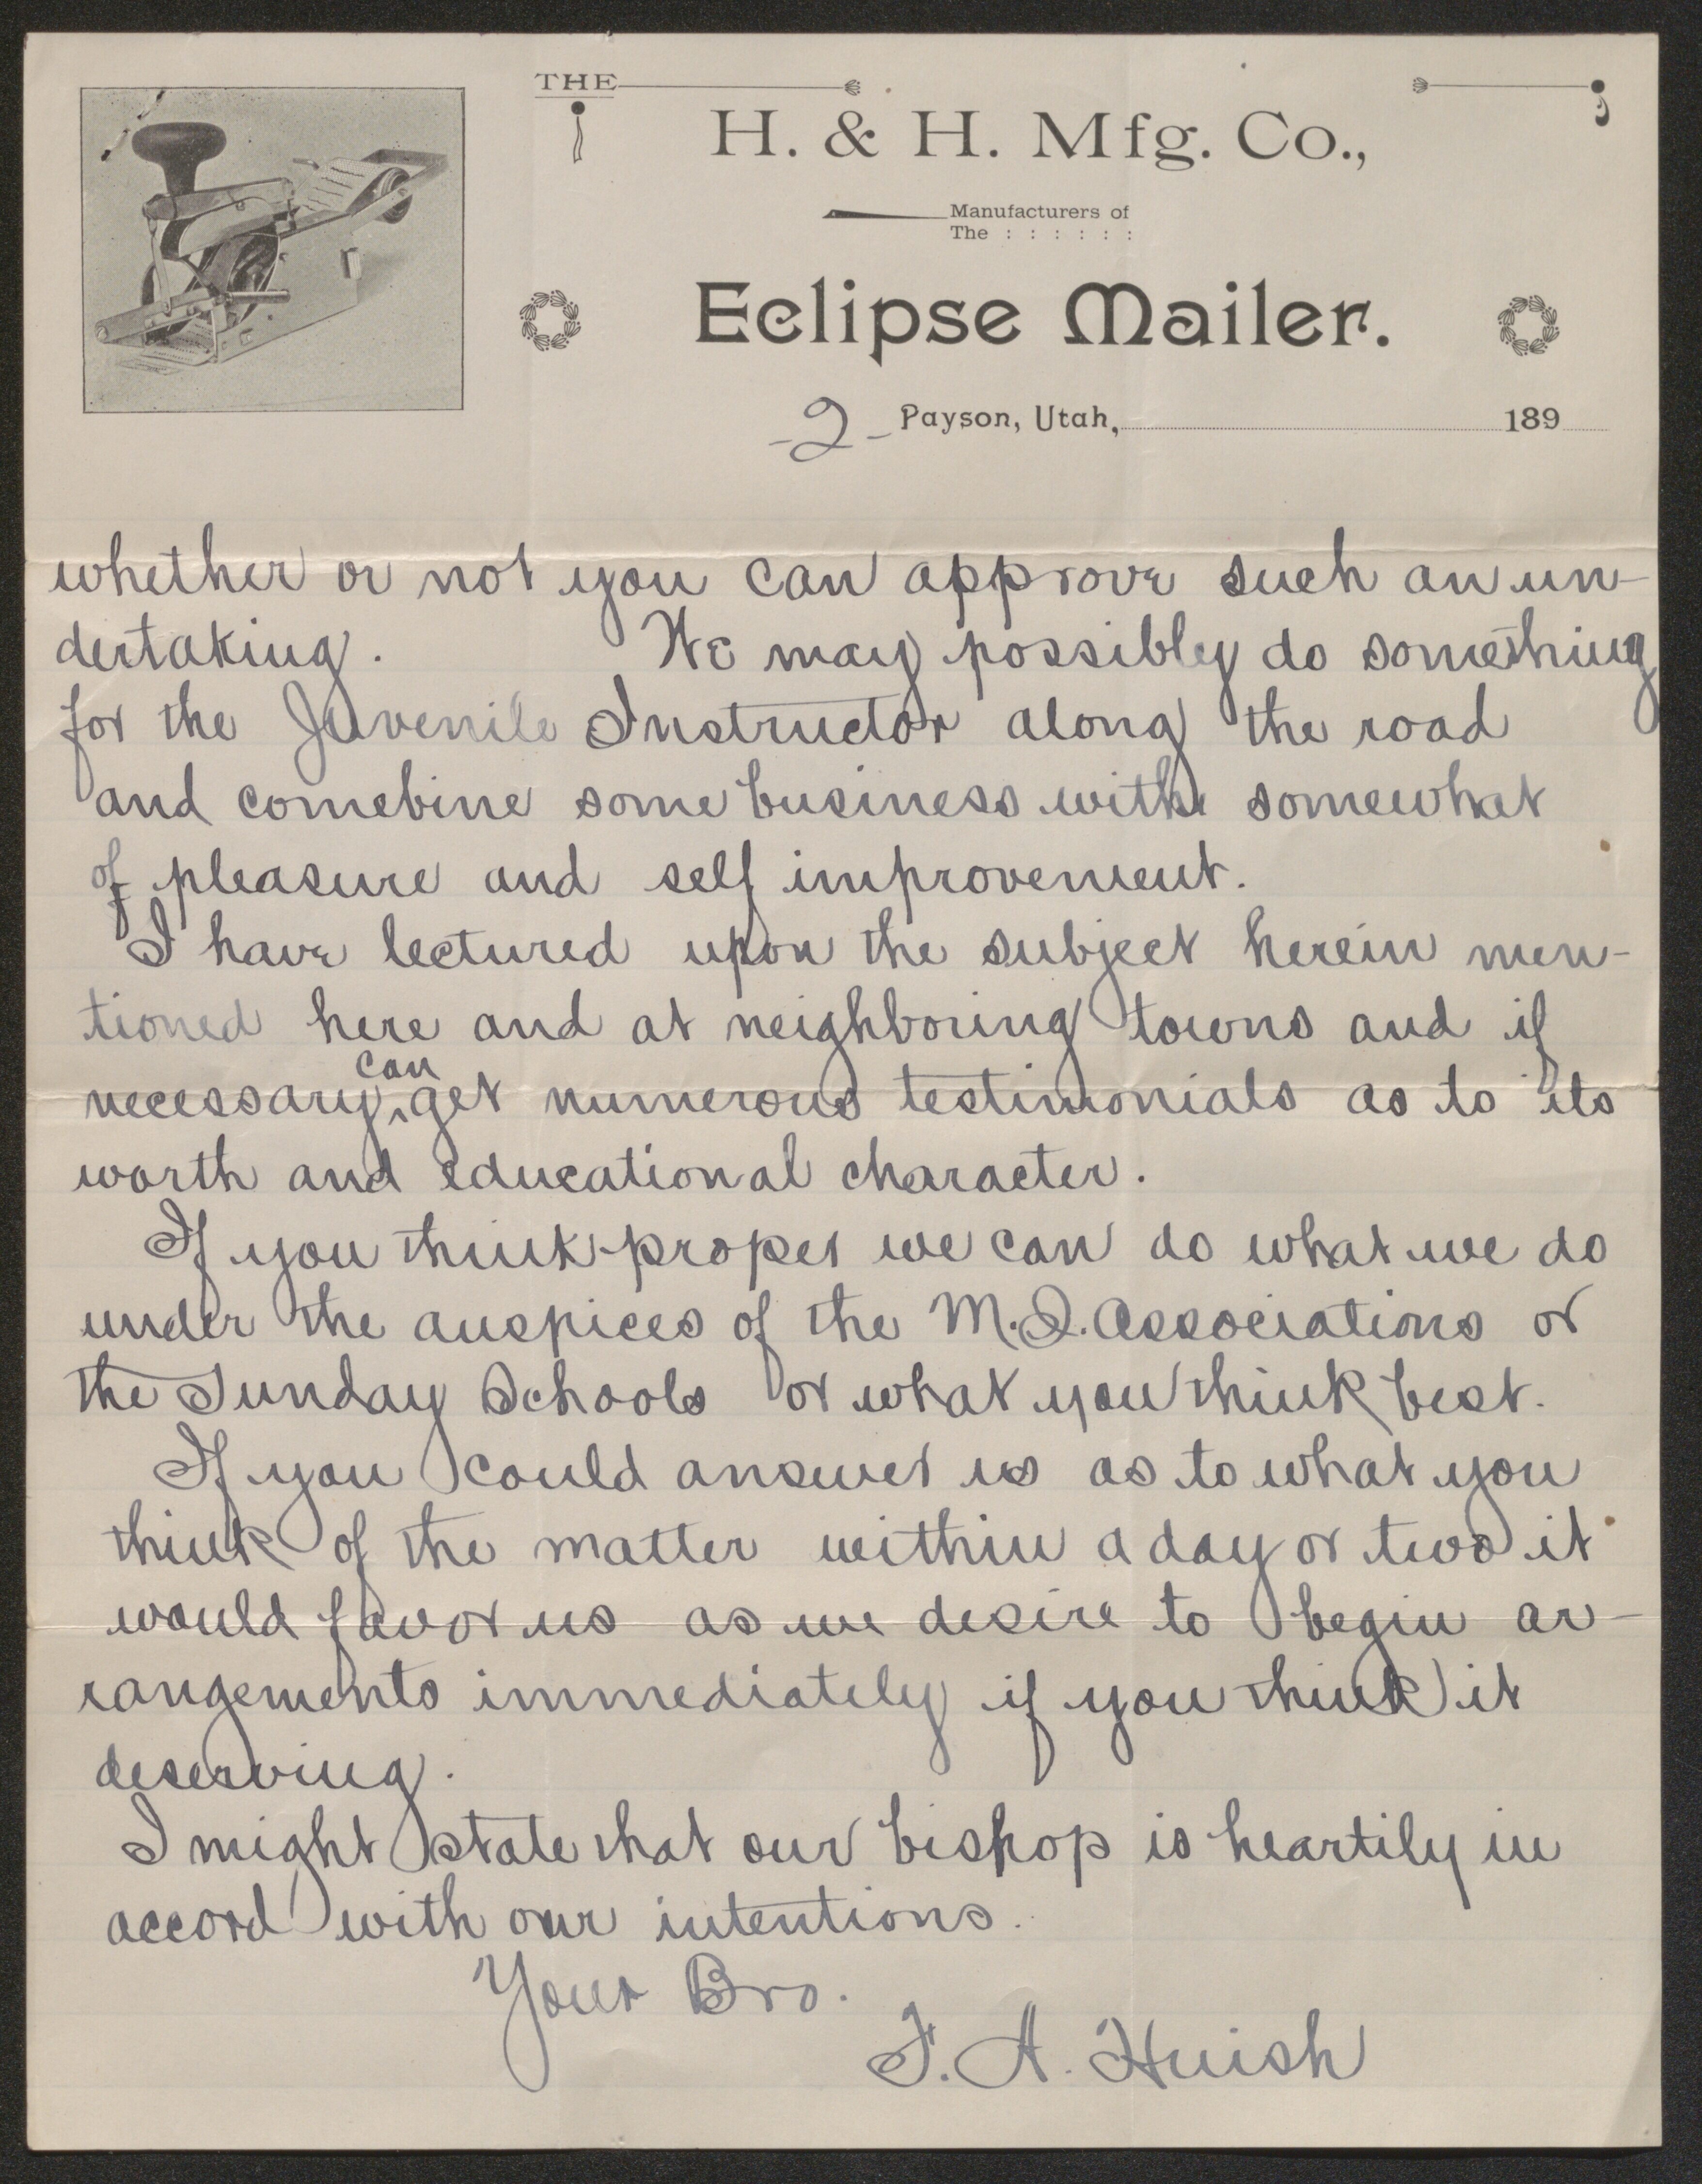 THE
H. & H. Mfg. Co.,
Manufacturers of
The : : : : : :
Eclipse Mailer.
-2- Payson, Utah, 189
whether or not you can approve such an un-
dertaking. We may possibley do something
for the Juvenile Instructor along the road
and comebine some business with somewhat
of pleasure and self improvement.
I have lectured upon the subject herein men-
tioned here and at neighboring towns and if
can
necessary ^ get numerous testimonials as to its
worth and educational character.
If you think proper we can do what we do
under the auspices of the M.I. Associations or
the Sunday Schools or what you think best.
If you could answer us as to what you
think of the matter within a day or two it
would favor us as we desire to begin ar-
rangements immediately if you think it
deserving.
I might state that our bishop is heartily in
accord with our intentions.
Your Bro.
F. A. Huish